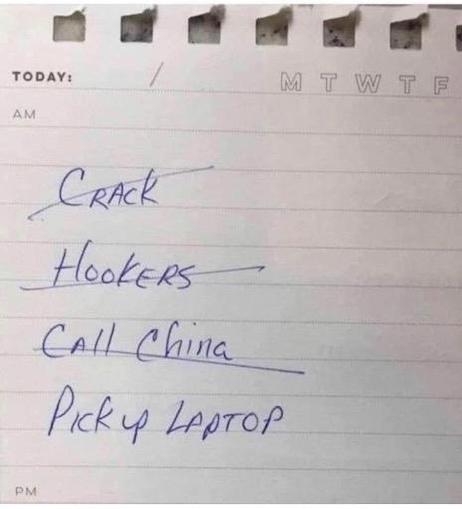 TODAY: / M T W T F
AM
CRACK
HOOKERS
CAll China
Pick up LAPTOP
PM